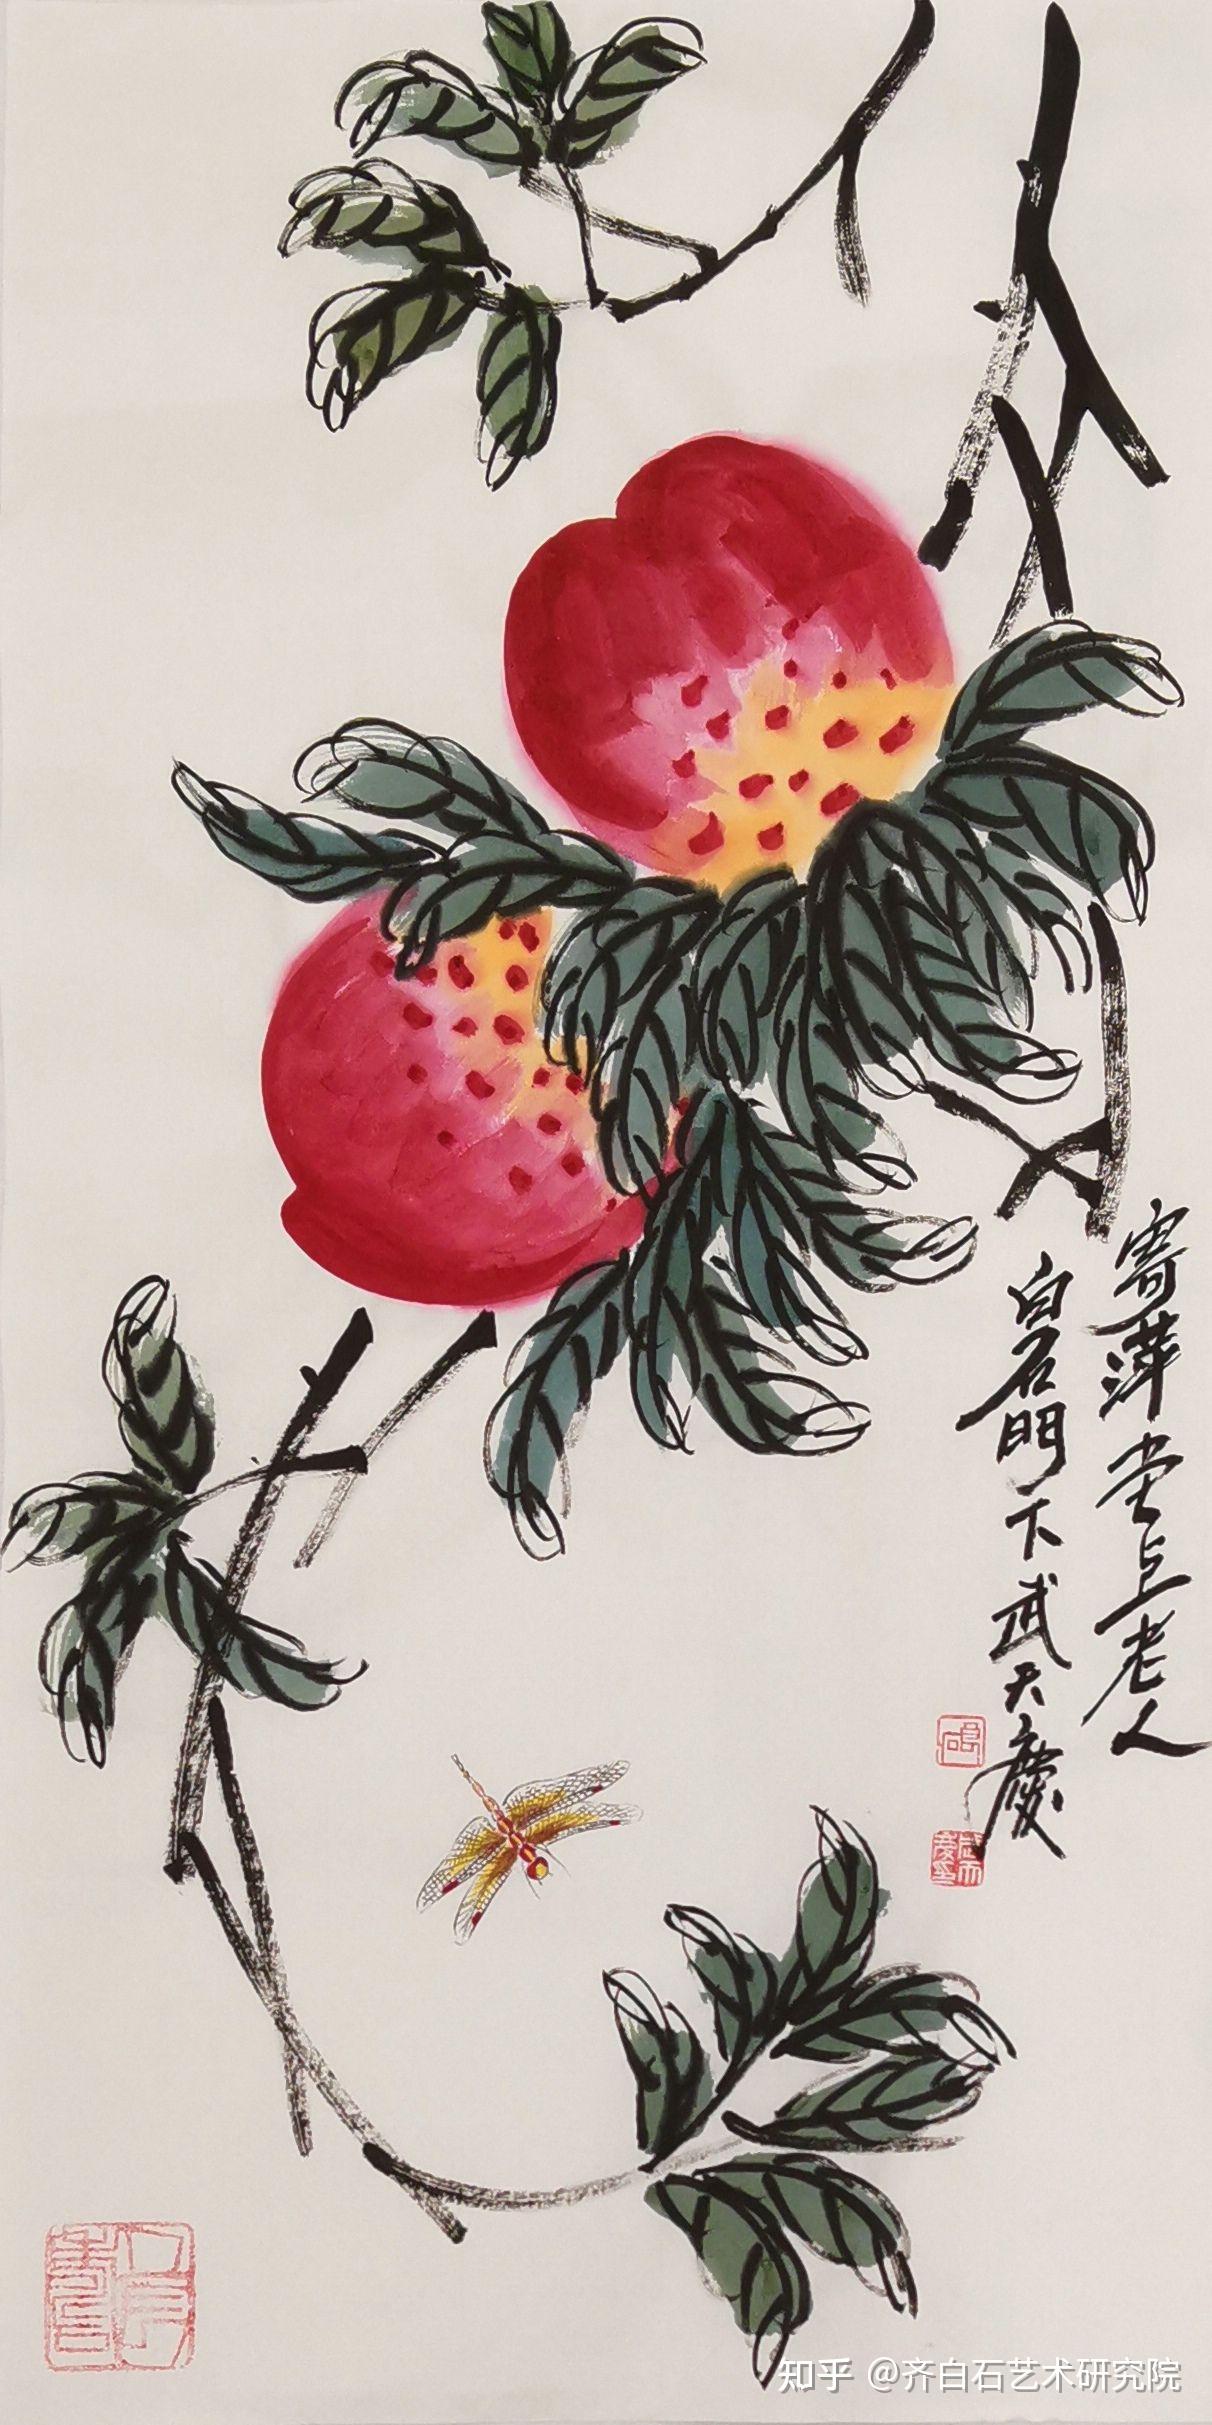 寄萍堂上老人
白石門下武天慶
知乎 @齐白石艺术研究院